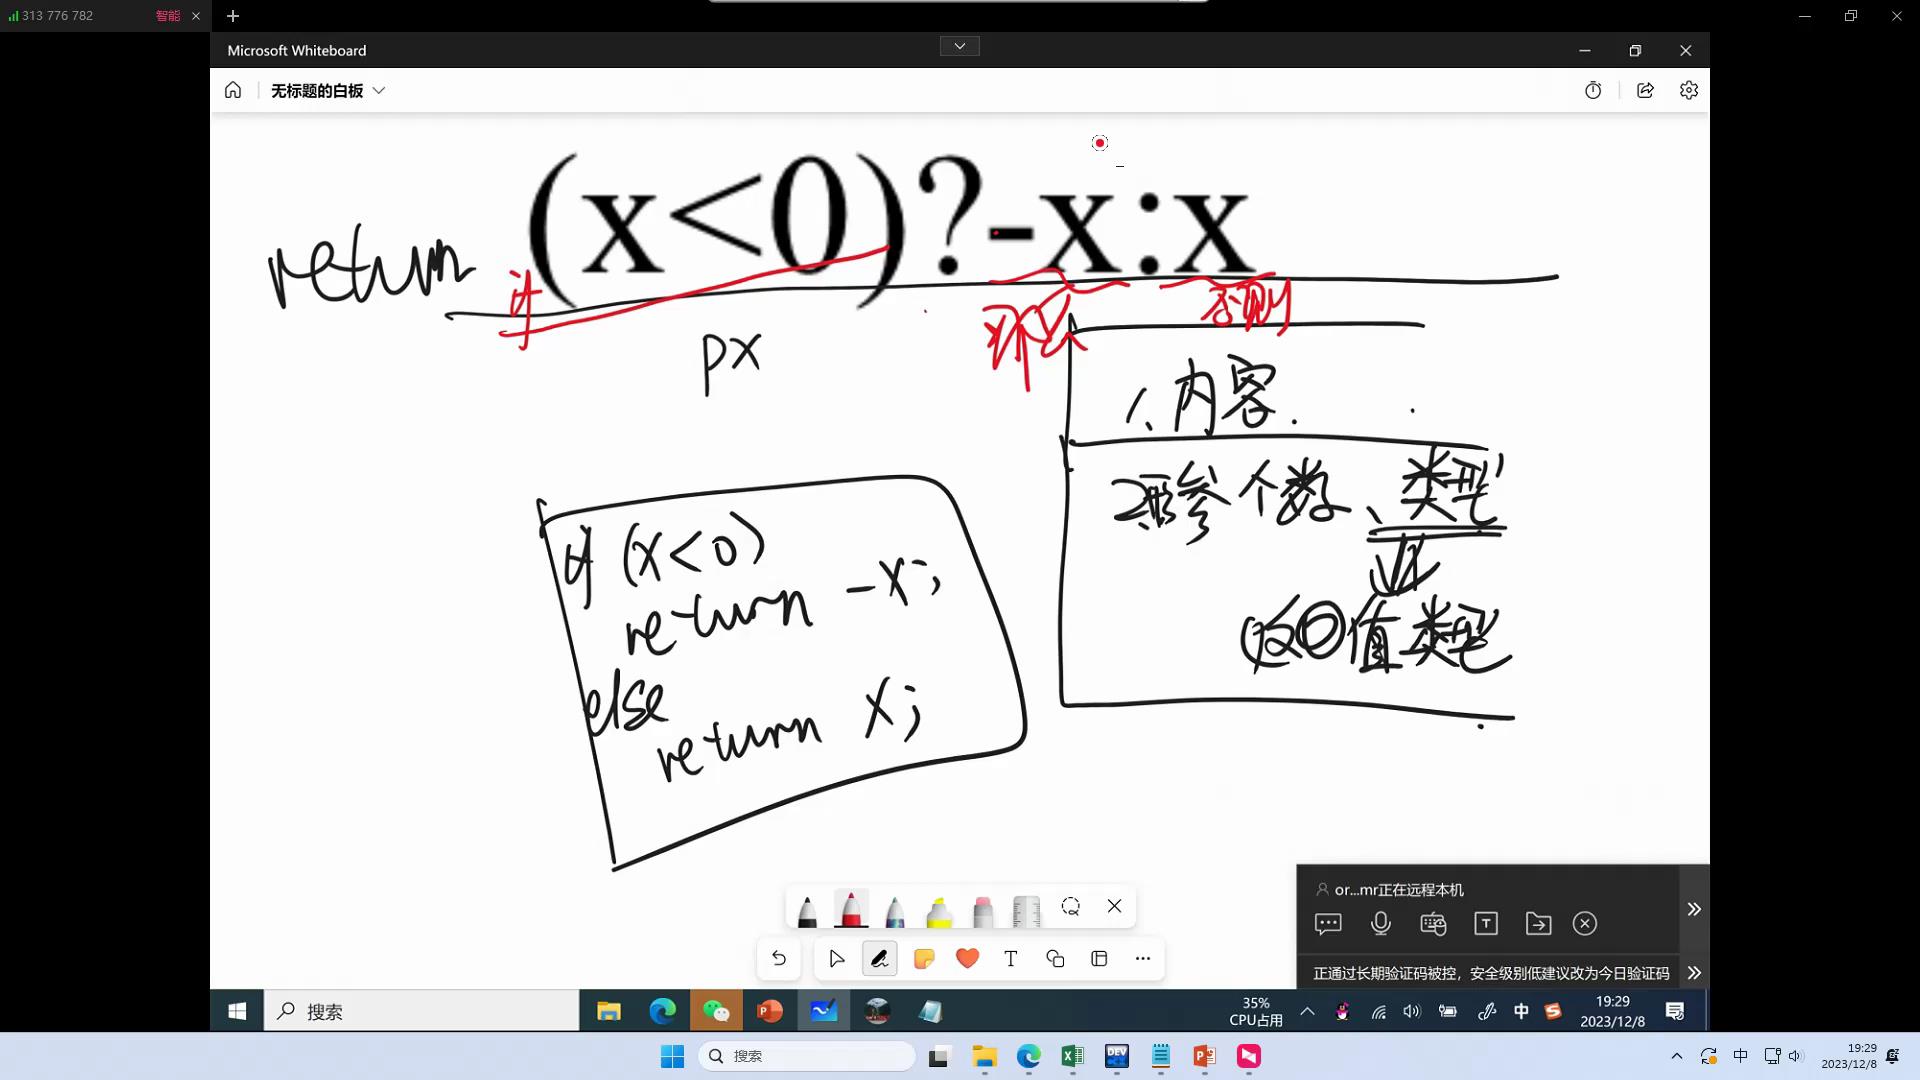 313 776 782 智能
Microsoft Whiteboard
无标题的白板
return (x<0)?-x:x
if
否则
px
1、内容.
2、形参个数、类型
返回值类型
if (x<0)
return -x;
else
return x;
or...mr正在远程本机
正通过长期验证码被控，安全级别低建议改为今日验证码
T
搜索
35%
CPU占用
中
19:29
2023/12/8
搜索
DEV
中
19:29
2023/12/8